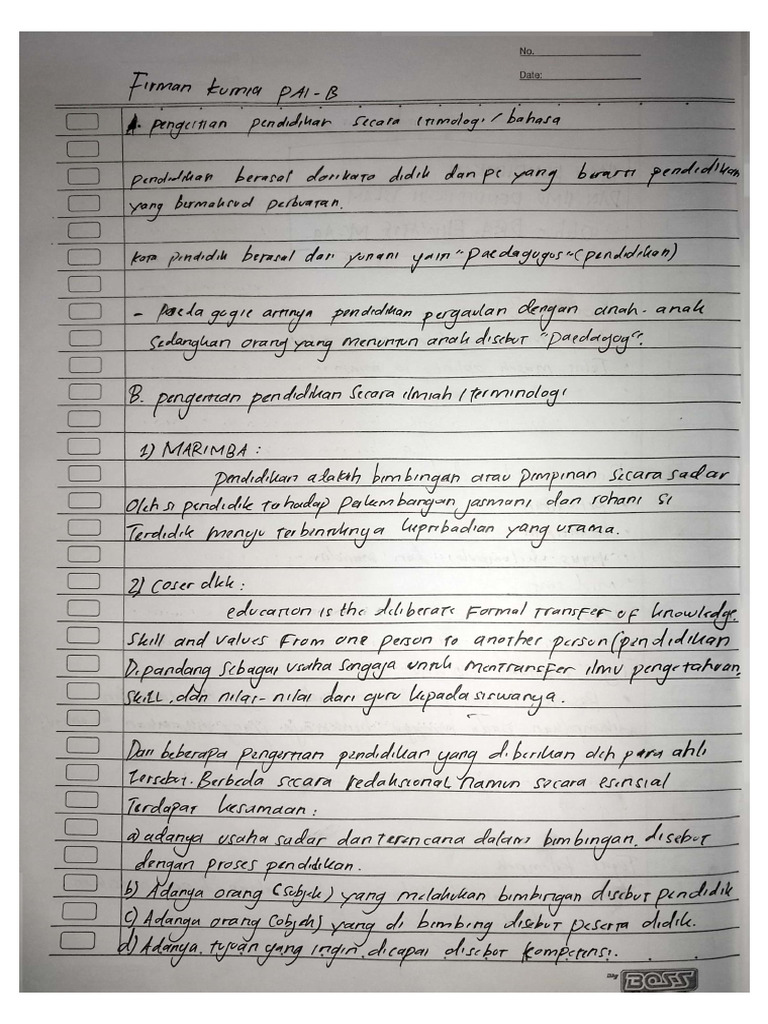 No.
Date:
Firman Kurnia PAI-B
A. pengertian pendidikan secara itimologi / bahasa
pendidikan berasal dari kata didik dan pe yang berarti pendidikan
yang bermaksud perbuatan.
Kata pendidik berasal dari yunani yain "paedagogus" (pendidikan)
- paedagogie artinya pendidikan pergaulan dengan anak-anak
sedangkan orang yang menuntun anak disebut "paedagog".
B. pengertian pendidikan secara ilmiah / terminologi
1) MARIMBA :
pendidikan alakah bimbingan atau pimpinan secara sadar
Oleh si pendidik tehadap pekembangan jasmani dan rohani si
Terdidik menuju terbentuknya kepribadian yang utama.
2) Coser dkk :
education is the deliberate Formal Transfer of knowledge,
skill and values From one person to another person (pendidikan
Dipandang sebagai usaha sengaja untuk mentransfer ilmu pengetahuan,
skill, dan nilai-nilai dari guru kepada siswanya.
Dari beberapa pengertian pendidikan yang diberikan oleh para ahli
tersebut. Berbeda secara redaksional namun secara esensial
Terdapat kesamaan :
a) adanya usaha sadar dan terencana dalam bimbingan, disebut
dengan proses pendidikan.
b) Adanya orang (subjek) yang melakukan bimbingan disebut pendidik
c) Adanya orang (objek) yang di bimbing disebut peserta didik.
d) Adanya tujuan yang ingin dicapai disebut kompetensi.
My BOSS